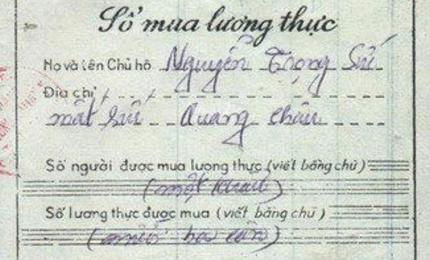 Sổ mua lương thực
Họ và tên Chủ hộ Nguyễn Trọng Sử
Địa chỉ
Quang Châu
Số người được mua lương thực (viết bằng chữ)
(một
Số lương thực được mua (viết bằng chữ)
(mười ba cân)